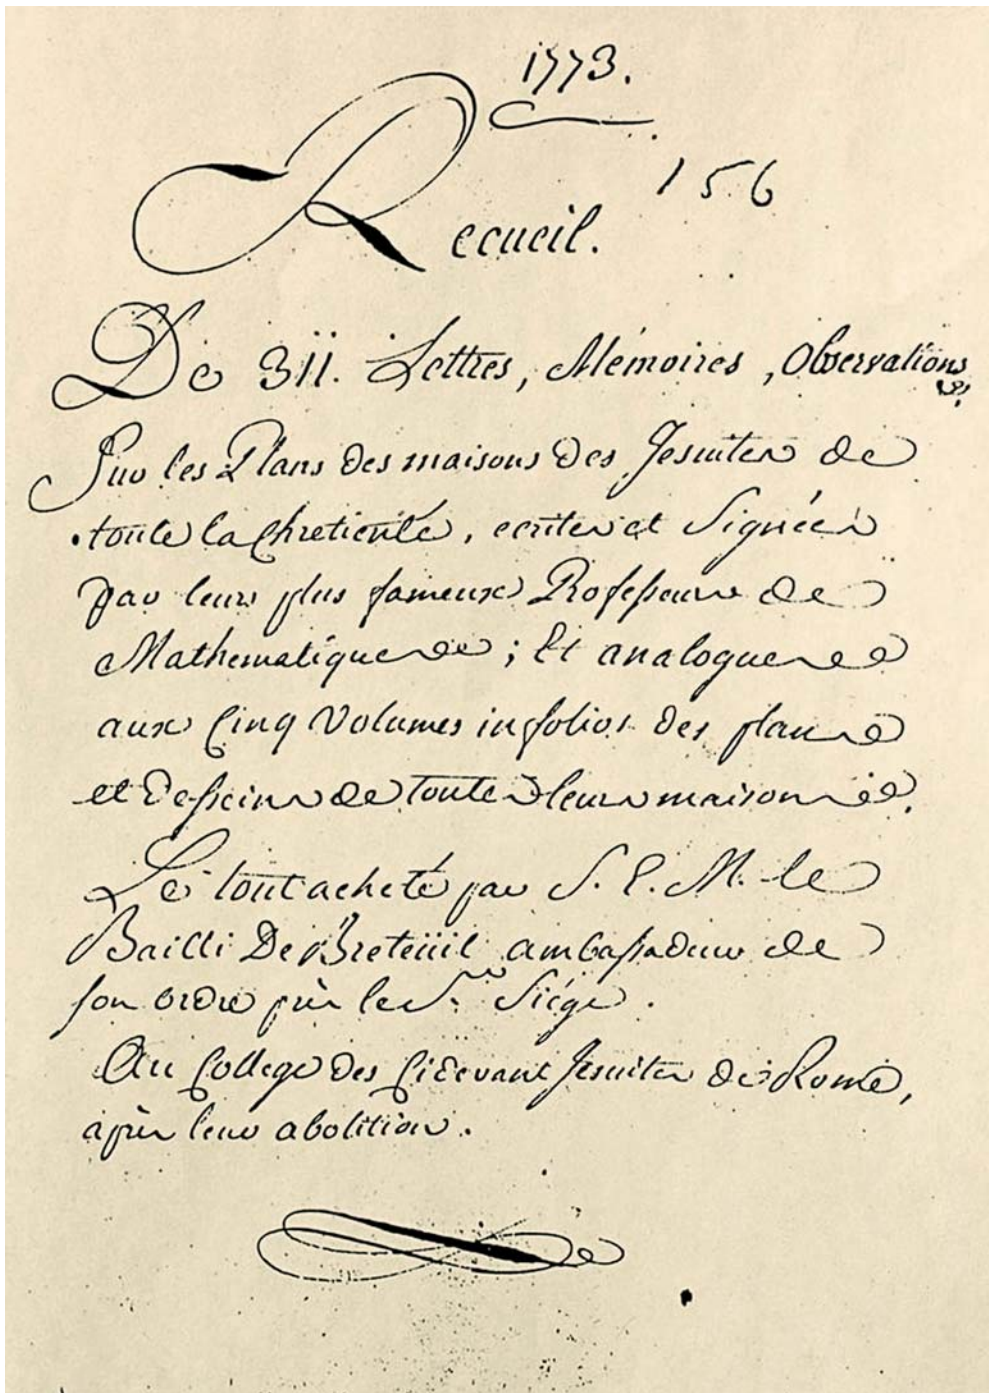 1773.
156
Recueil.
De 311. Lettres, Mémoires, Observations
Sur les Plans des maisons des Jesuites de
toute la chretienté, ecrites et Signées
par leurs plus fameux Professeurs de
Mathematiques ; Et analogues
aux Cinq Volumes infolios des plans
et Desseins de toutes leurs maisons.
Le tout acheté par S. E. M. le
Bailli De Breteüil ambassadeur de
son ordre près le St. Siége.
Au College des Cidevant Jesuites de Rome,
après leur abolition.